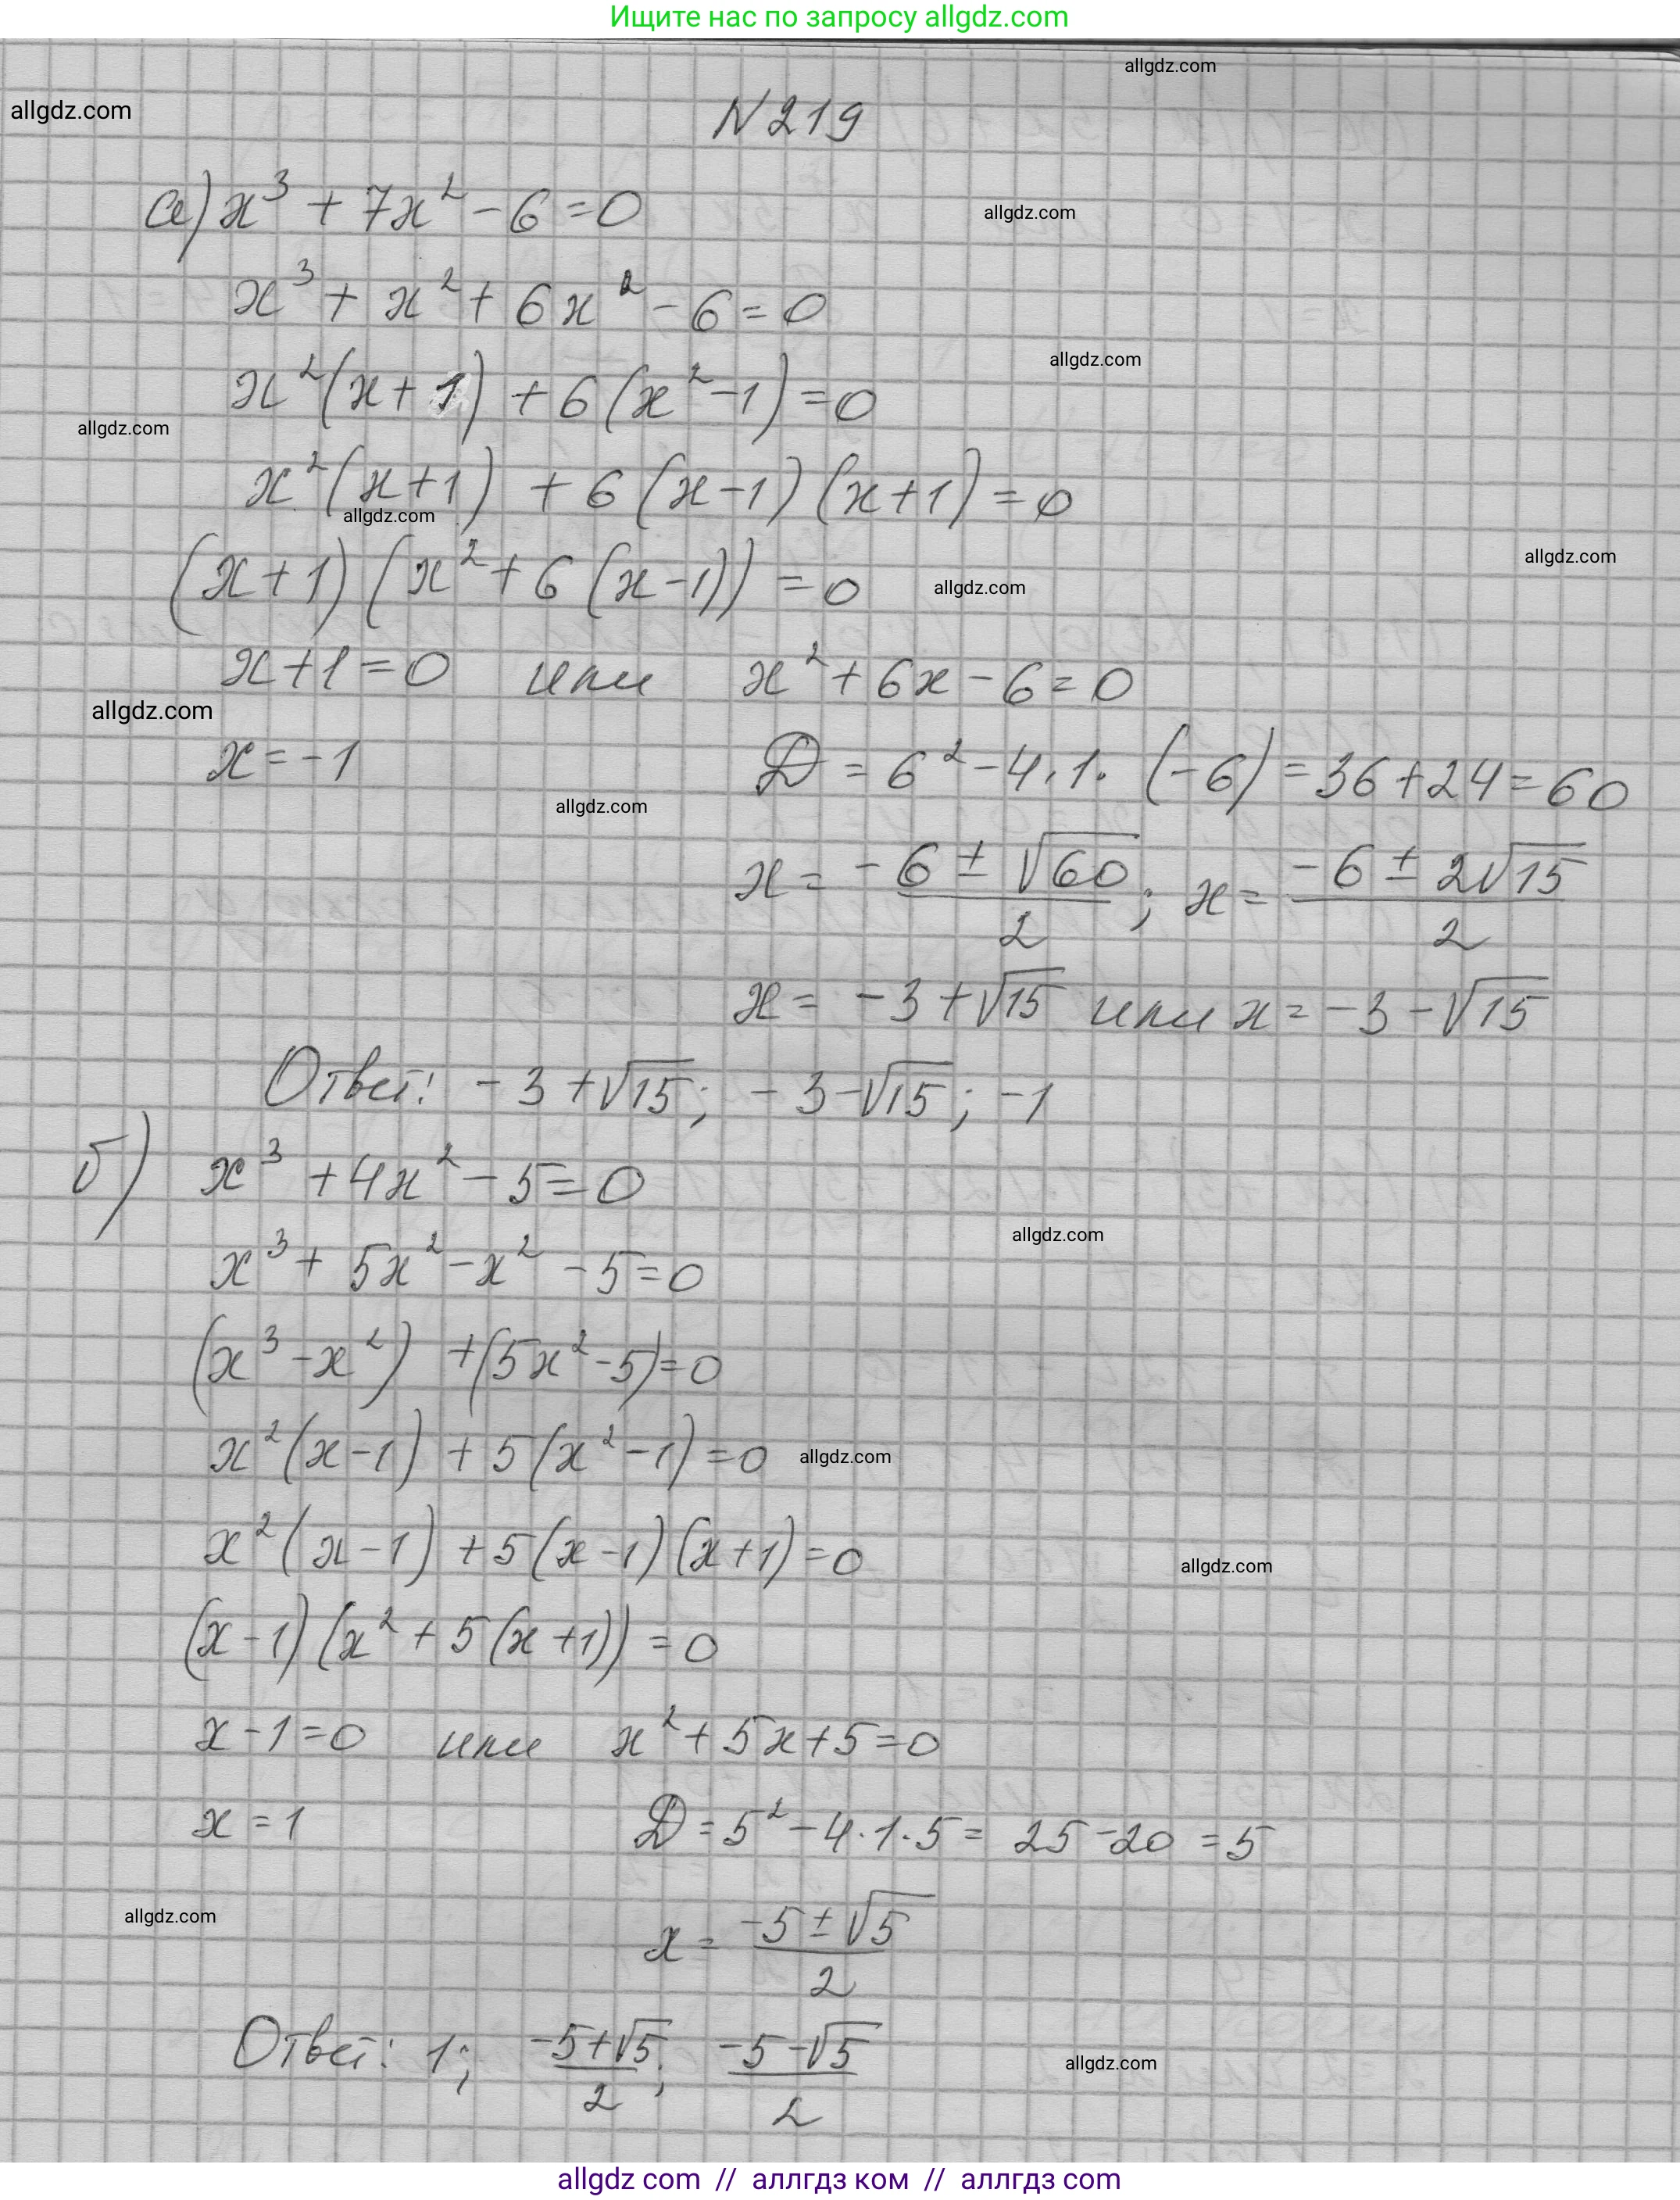 Ищите нас по запросу allgdz.com
allgdz.com
allgdz.com
N 219
а) x³ + 7x² - 6 = 0
allgdz.com
x³ + x² + 6x² - 6 = 0
allgdz.com
x²(x + 1) + 6(x² - 1) = 0
allgdz.com
x²(x+1) + 6(x-1)(x+1) = 0
allgdz.com
allgdz.com
(x+1)(x² + 6(x-1)) = 0
allgdz.com
x+1=0 или x² + 6x - 6 = 0
allgdz.com
x = -1 D = 6² - 4·1·(-6) = 36 + 24 = 60
allgdz.com
x = (-6 ± √60)/2; x = (-6 ± 2√15)/2
x = -3 + √15 или x = -3 - √15
Ответ: -3 + √15; -3 - √15; -1
б) x³ + 4x² - 5 = 0
allgdz.com
x³ + 5x² - x² - 5 = 0
(x³ - x²) + (5x² - 5) = 0
x²(x-1) + 5(x² - 1) = 0
allgdz.com
x²(x-1) + 5(x-1)(x+1) = 0
allgdz.com
(x-1)(x² + 5(x+1)) = 0
x - 1 = 0 или x² + 5x + 5 = 0
x = 1 D = 5² - 4·1·5 = 25 - 20 = 5
allgdz.com
x = (-5 ± √5)/2
Ответ: 1; (-5+√5)/2; (-5-√5)/2
allgdz.com
allgdz com // аллгдз ком // аллгдз com